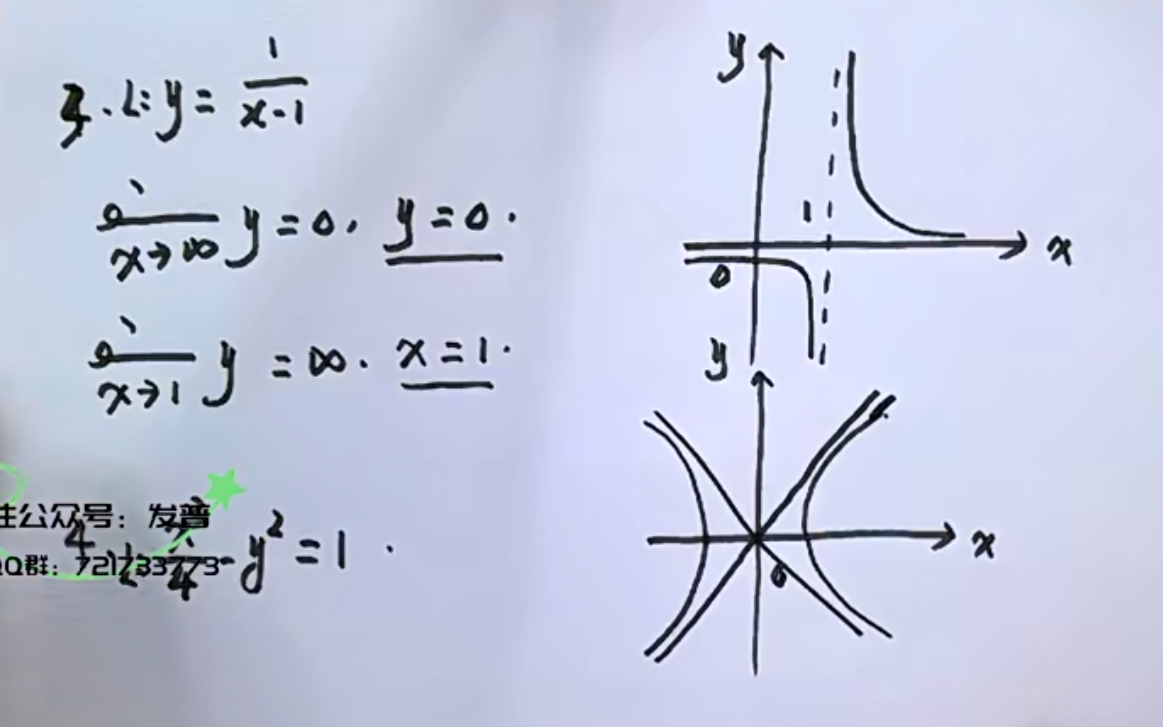 3. L: y = 1/(x-1)
x→∞ y = 0. y = 0.
x→1 y = ∞. x = 1.
4. L: x²/4 - y² = 1.
公众号：发普
QQ群：721733773
y
1
0
x
y
0
x